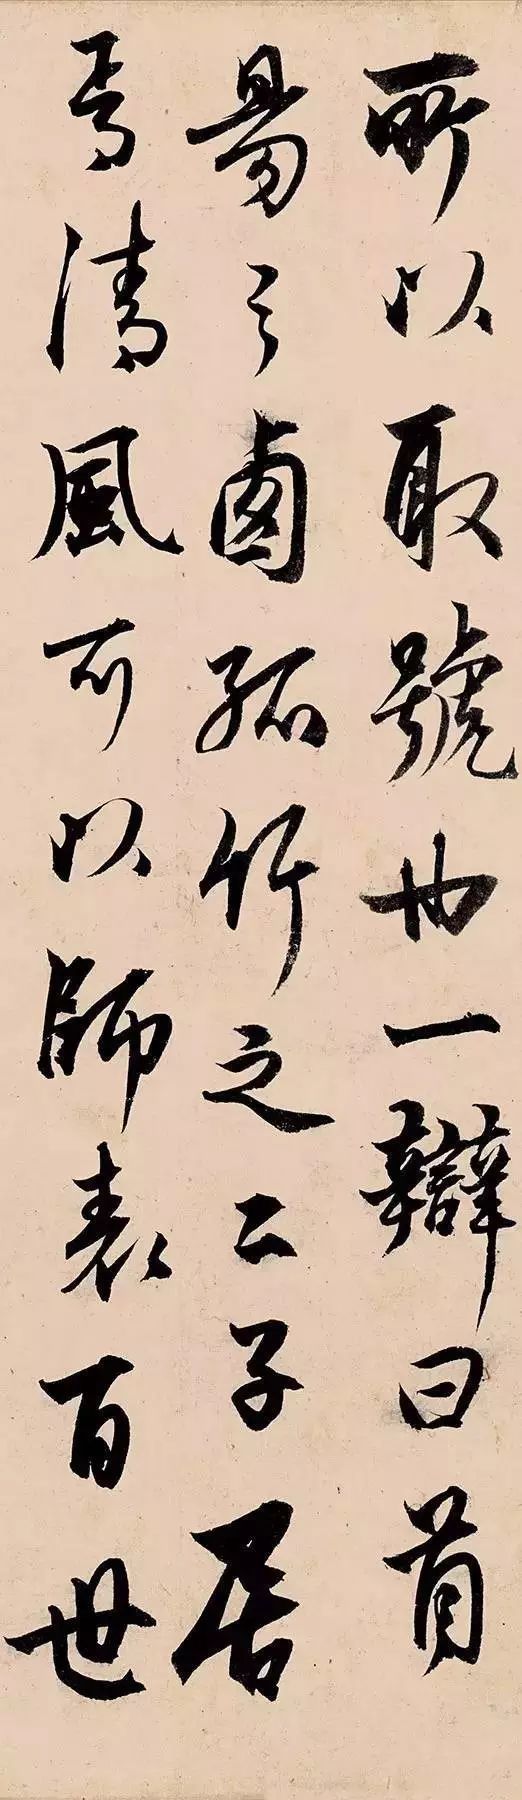 所以取號也一辯曰首
昜之鹵孤竹之二子居
焉清風可以師表百世